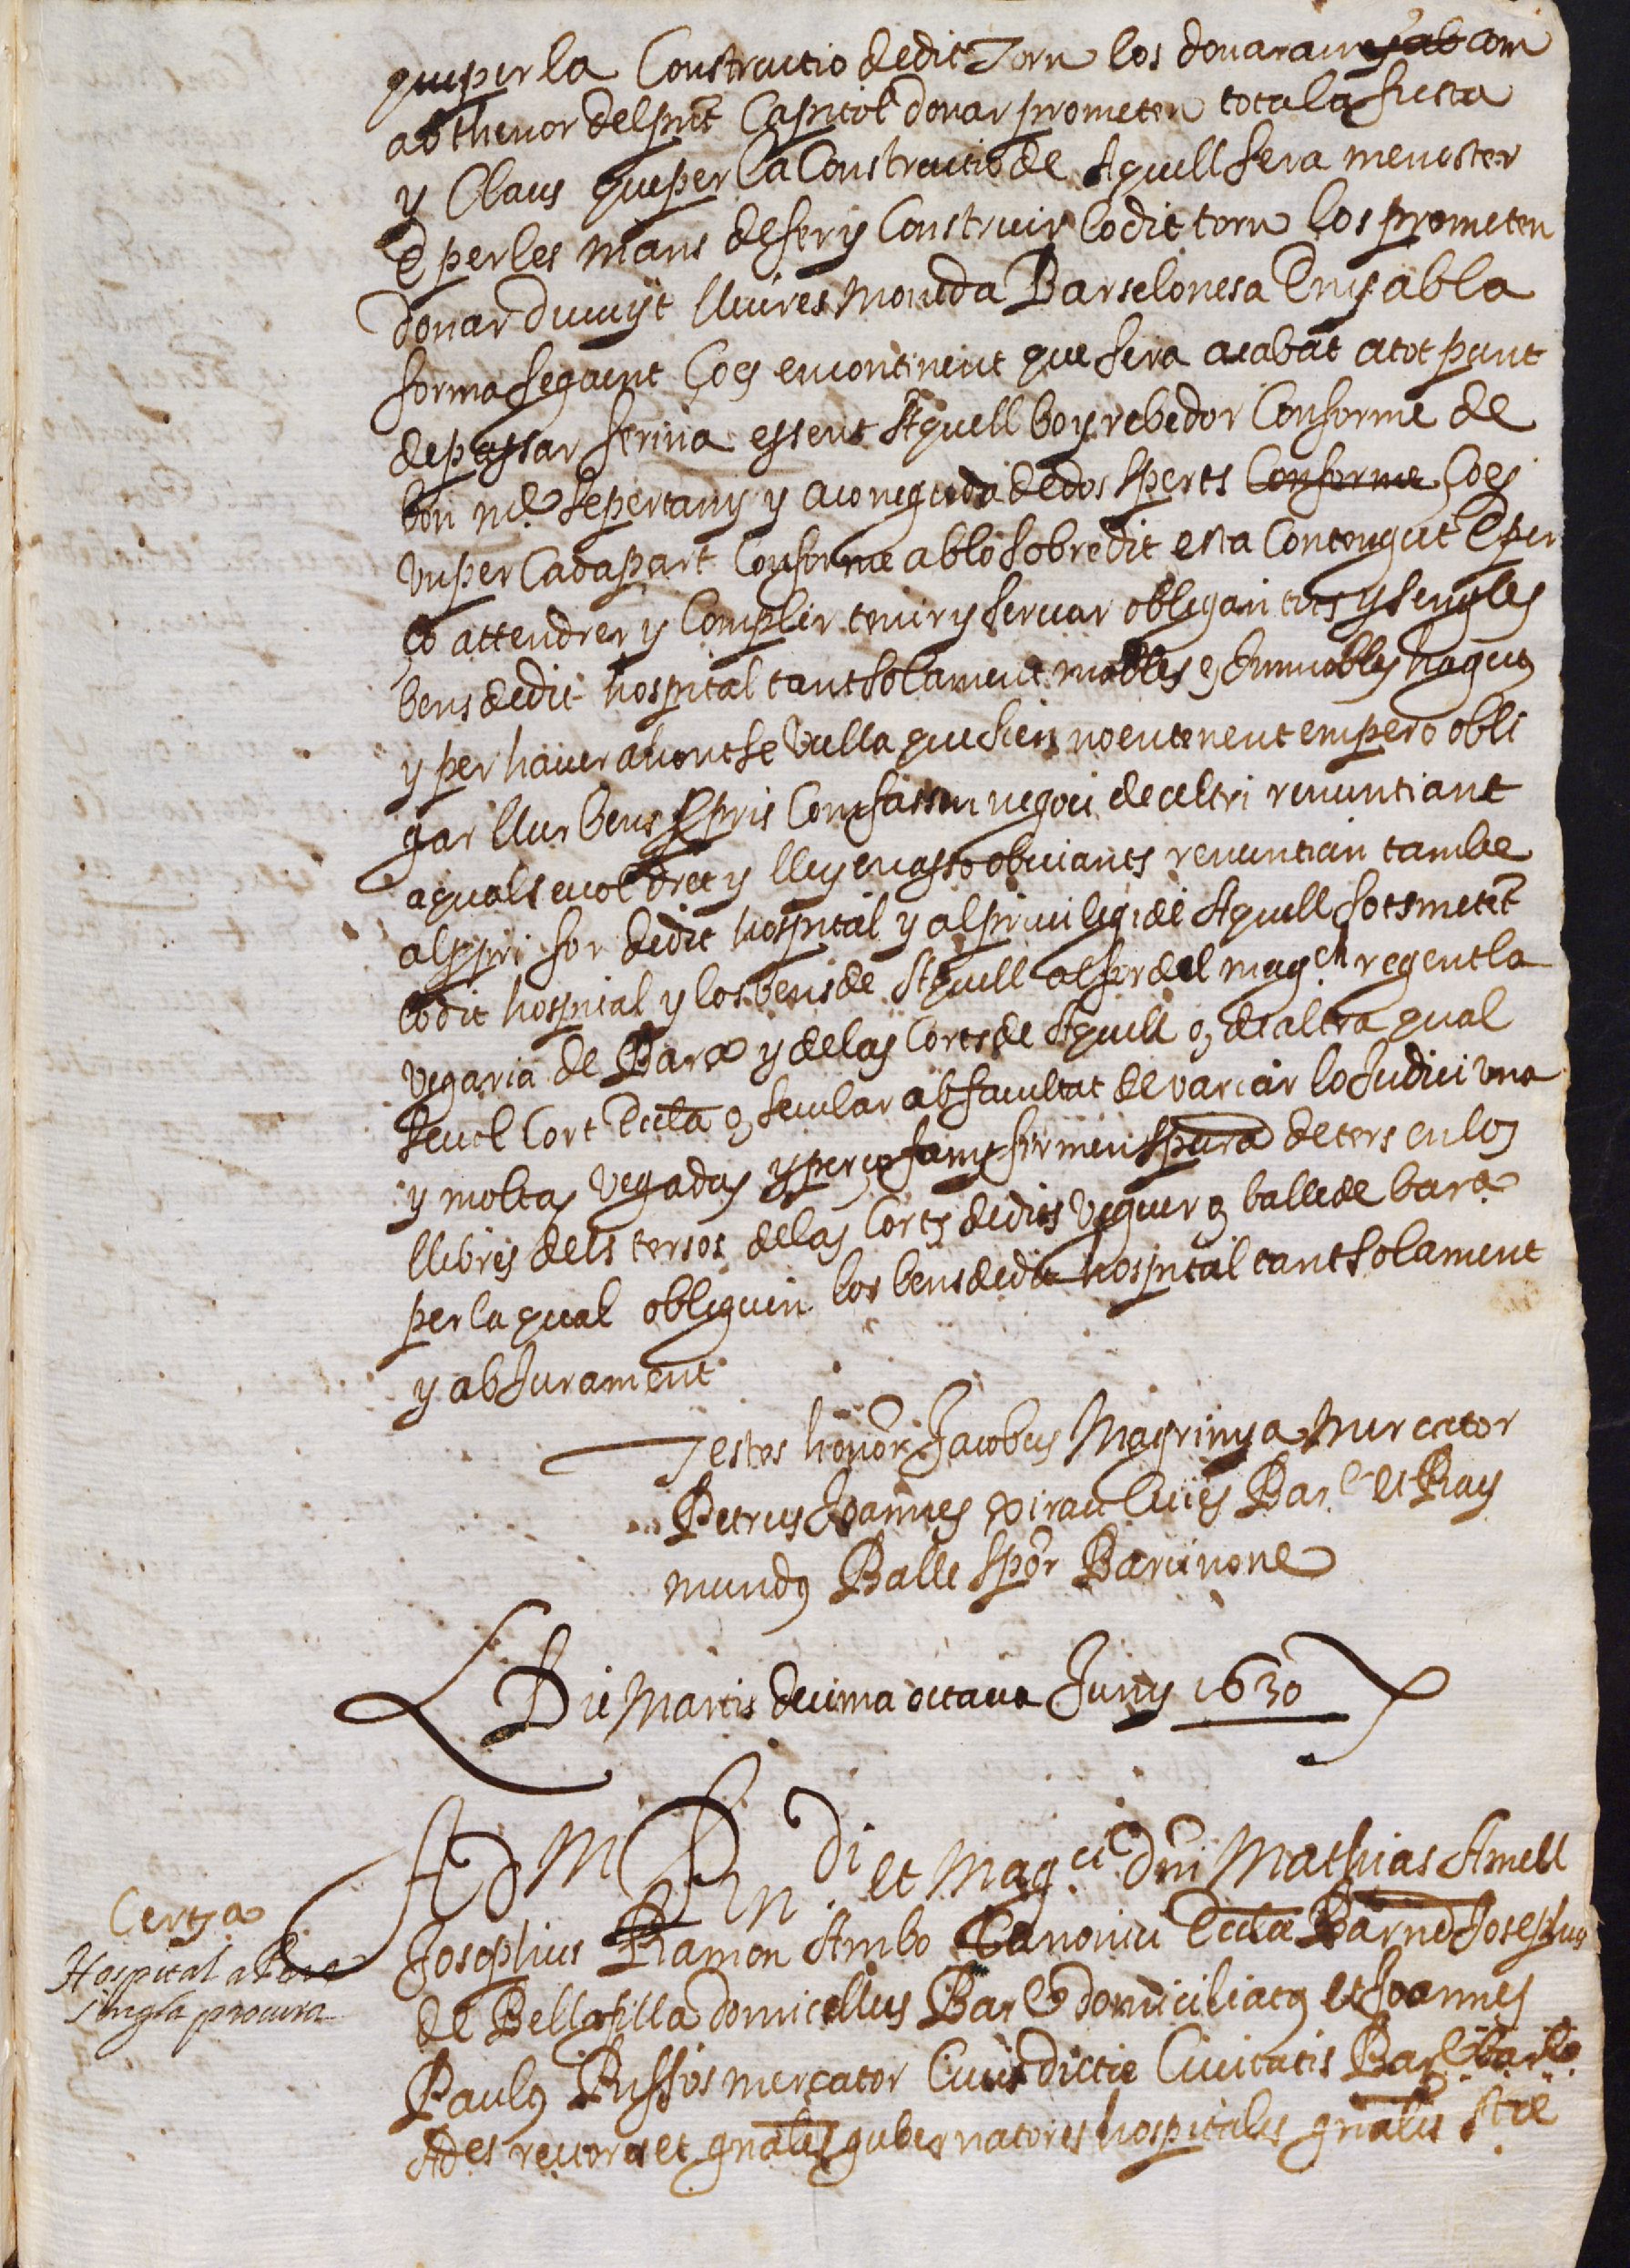 que per la Constructio de dit Torn los donaran y ab com
ab thenor del pnt Capitol donar prometen tota la fusta
y Claus que per la Constructio de Aquell sera menester
E per les mans de fer y Construir lo dit torn los prometen
donar divuyt lliures moneda Barselonesa Enys ab la
forma seguent ço es encontinent que sera acabat a tot punt
de passar ferina essent Aquell bo y rebedor Conforme de
bon me. se pertany y a coneguda de dos sperts Conforme ço es
un per Cada part Conforme ab lo sobredit esta Contengut E per
ço attendrer y Complir tenir y servar obligan tots y sengles
bens de dit hospital tant solament mobles e Immobles haguts
y per haver ahont se vulla que sien no entenent empero obli
gar llur bens ppris Com fassen negoci de altri renuntiant
a qualsevol dret y lley en asso obviants renuntian tambe
al ppri for de dit hospital y al privilegi de Aquell sotsmetet
lo dit hospital y los bens de Aquell al for del magch regent la
vegaria de Bara y de las Corts de Aquell o, de altra qual
sevol Cort Eccla o, secular ab facultat de variar lo Judici una
y moltas vegadas y per ço fan y firmen Spura de ters en los
llibres dels tersos de las Corts de dits veguer o, balle de bara
per la qual obliguen los bens de dit hospital tant solament
y ab Jurament
Testes honor. Jacobus Magrinya Mercator
Petrus Joannes Xirau Cives Bar. et Ray
mundus Balle Spor Barcinone
Die Martis decima octava Juny 1630
Adm Rndi. et Magci dni Mathias Amell
Certa
Hospital a Pere
Singla procura
Josephus Ramon Ambo Canonici Eccla Barne Josephus
de Bellafilla domicellus Bar. domiciliatus et Joannes
Paulus Rissos mercator Civis dicta Civitatis Bar.
Ades rectores et gnales gubernatores hospitalis gnalis Stae